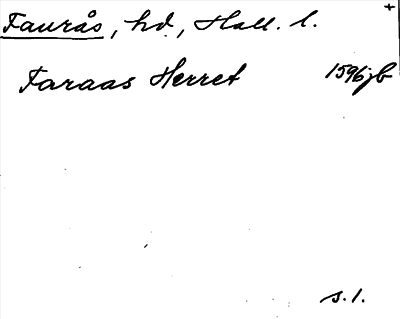 Faurås, hd, Hall. l.
Faraas Herret 1596 jb
s. 1.